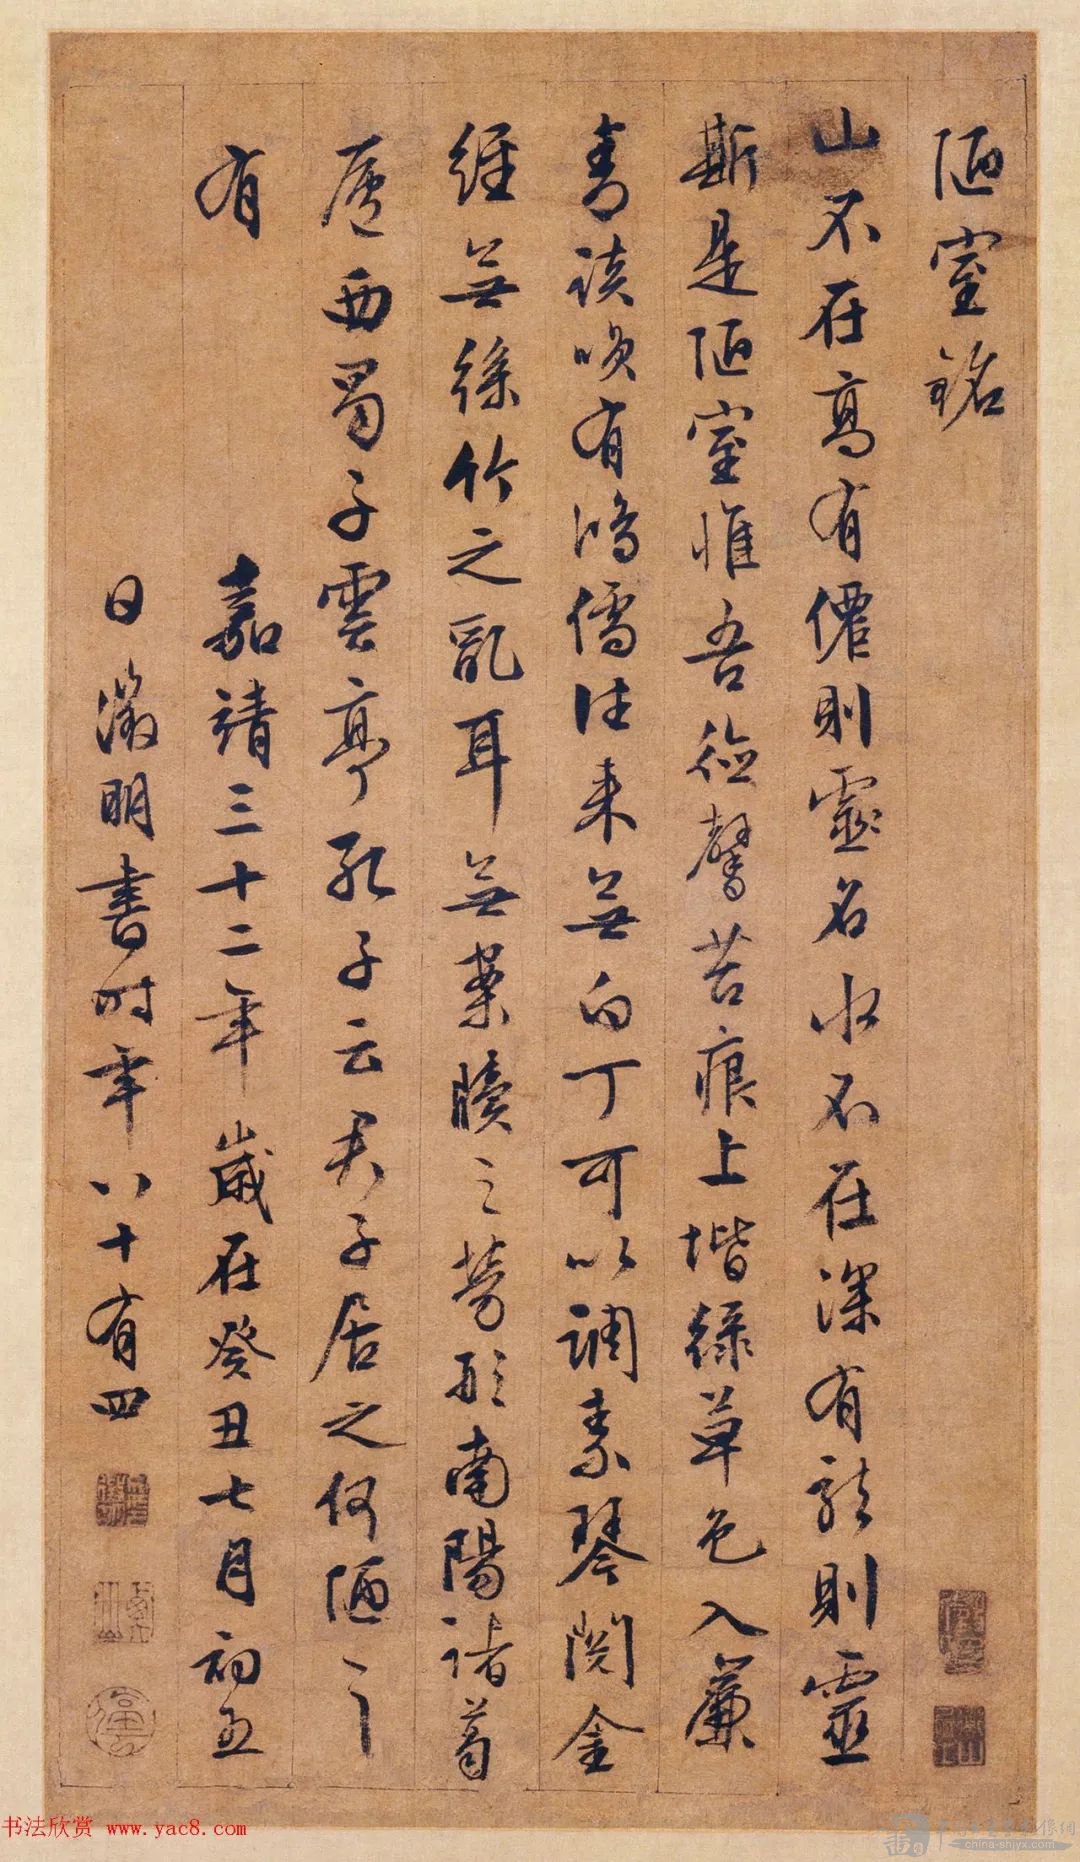 陋室銘
山不在高有僊則靈名水不在深有龍則靈
斯是陋室惟吾德馨苔痕上堦綠草色入簾
青談咲有鴻儒往來無白丁可以調素琴閱金
經無絲竹之亂耳無案牘之勞形南陽諸葛
廬西蜀子雲亭孔子云君子居之何陋之
有
嘉靖三十二年歲在癸丑七月初五
日徵明書時年八十有四
书法欣赏 www.yac8.com
china-shjyx.com